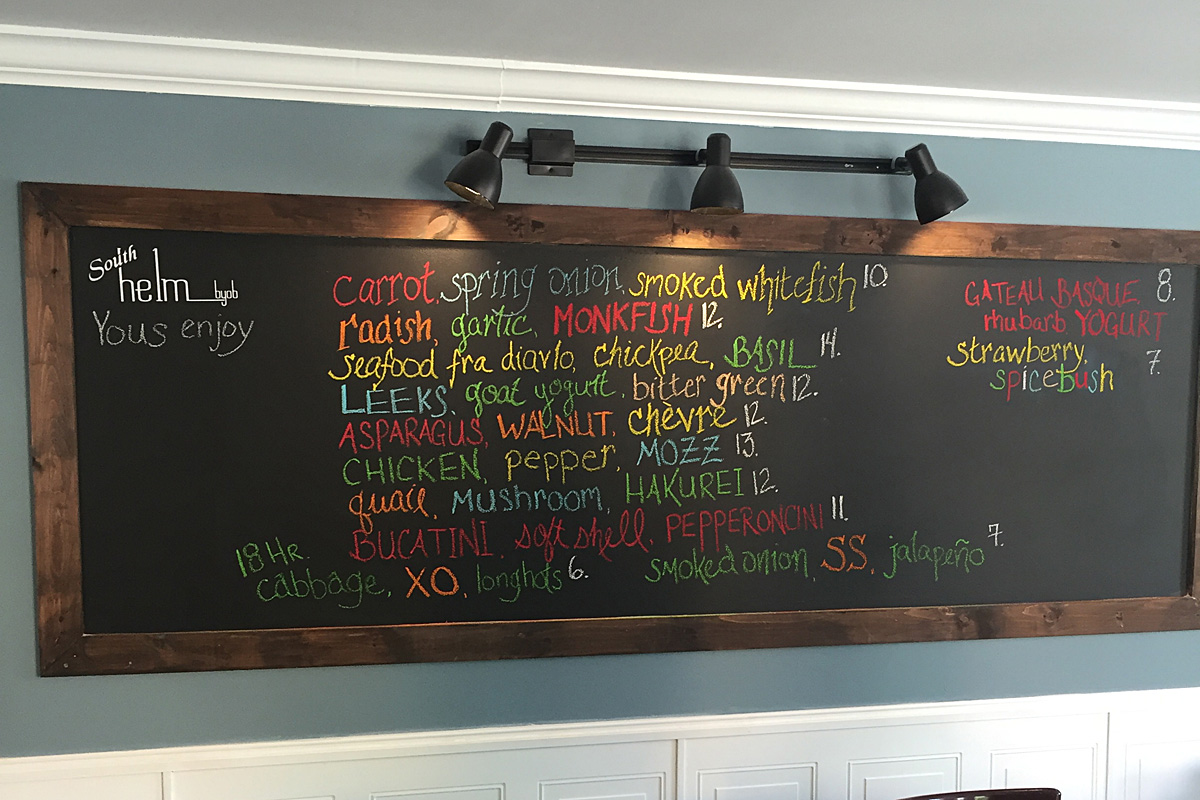 South
helm byob
Yous enjoy
carrot, spring onion, smoked whitefish 10.
radish, garlic, MONKFISH 12.
seafood fra diavlo, chickpea, BASIL 14.
LEEKS, goat yogurt, bitter green 12.
ASPARAGUS, WALNUT, chèvre 12.
CHICKEN, pepper, MOZZ 13.
quail, Mushroom, HAKUREI 12.
BUCATINI, soft shell, PEPPERONCINI 11.
18 HR.
cabbage, XO, longhots 6.
smoked onion, SS, jalapeño 7.
GATEAU BASQUE, 8.
rhubarb YOGURT
strawberry, 7.
spicebush